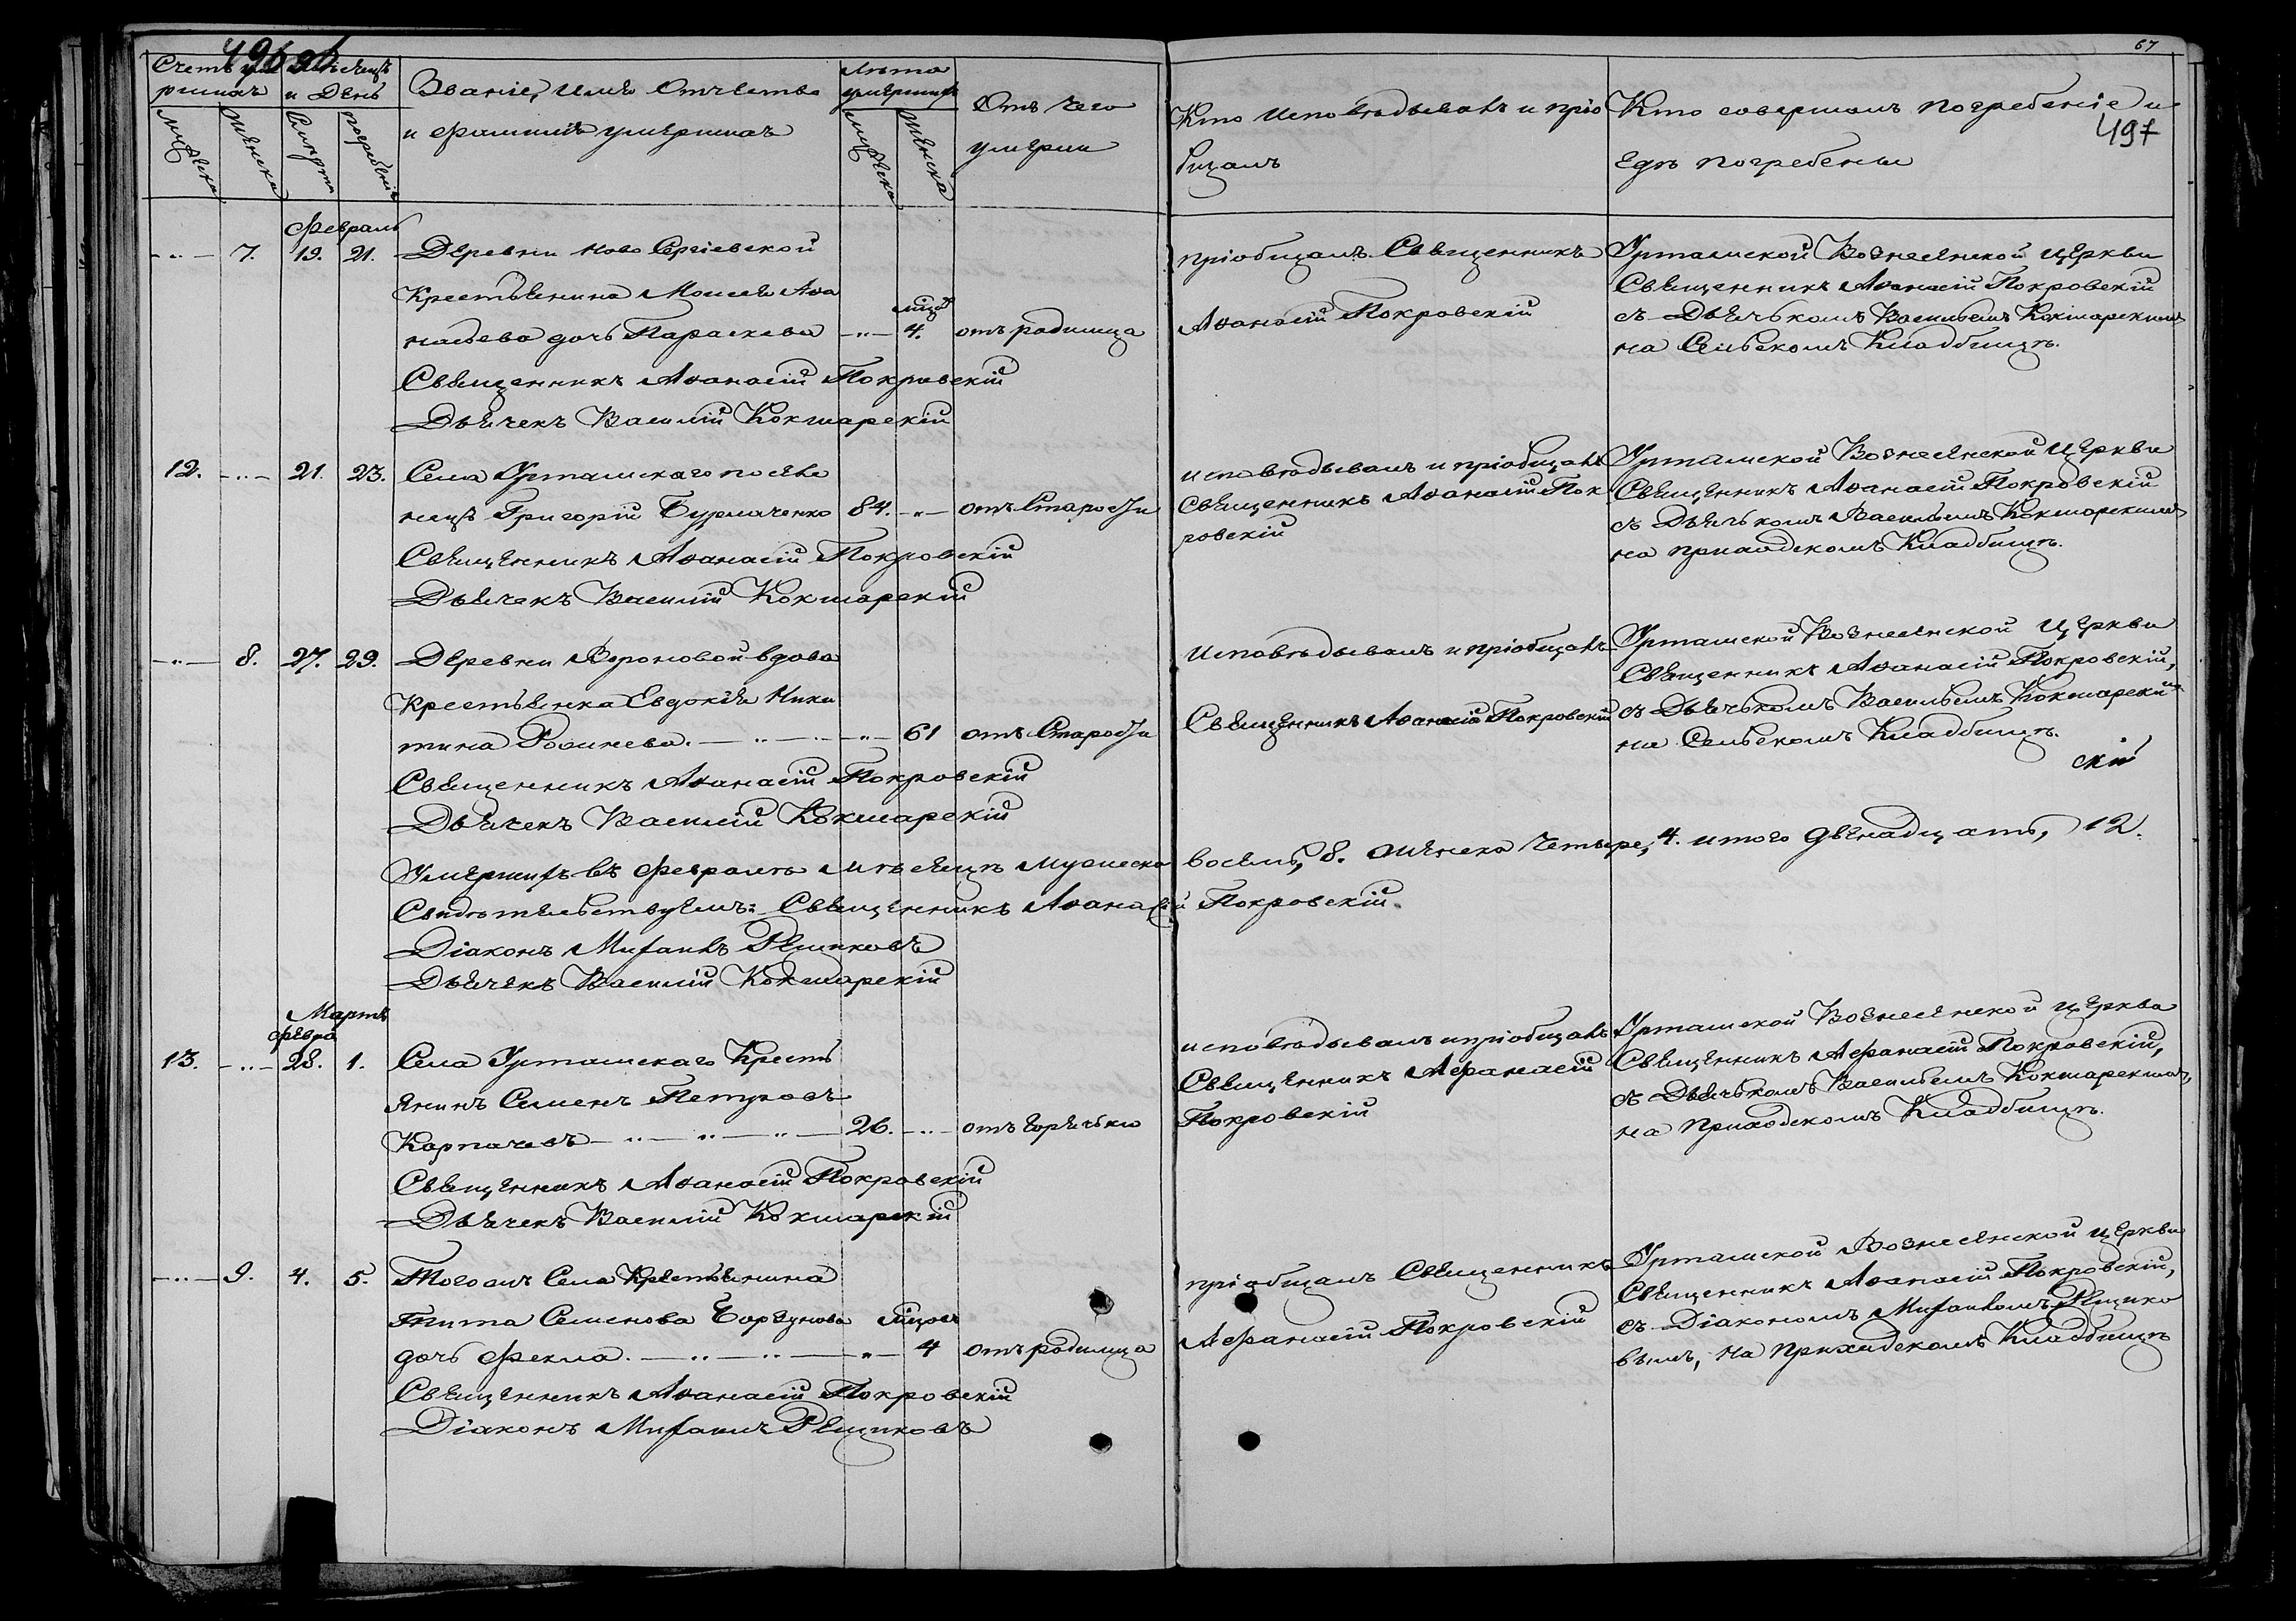 496 об
67
497
Счетъ уме
ршихъ
Мѣсяцъ
и День
Званіе, Имя Отчество
и фамилія умершихъ
Лѣта
умершихъ
Отъ чего
умерли
Кто исповѣдывалъ и пріо
бщалъ
Кто совершалъ погребеніе и
гдѣ погребены
мужеска
женска
Смерти
погребенія
мужеска
женска
Февраль
7. 19. 21. Деревни Ново Сергіевской
Крестьянина Моисея Афа
насьева дочь Параскева 4. отъ родимца
Священникъ Аѳанасій Покровскій
Дьячекъ Василій Кокшарскій
пріобщалъ Священникъ
Аѳанасій Покровскій
Урташской Вознесенской церкви
Священникъ Аѳанасій Покровскій
съ Дьячькомъ Васильемъ Кокшарскимъ
на Сельскомъ Кладбищѣ.
12. 21. 23. Села Урташскаго поселе
нецъ Григорій Бурмаченко 84. отъ Старости
Священникъ Аѳанасій Покровскій
Дьячекъ Василій Кокшарскій
исповѣдывалъ и пріобщалъ
Священникъ Аѳанасій Пок
ровскій
Урташской Вознесенской Церкви
Священникъ Аѳанасій Покровскій
съ Дьячькомъ Васильемъ Кокшарскимъ
на приходскомъ Кладбищѣ.
8. 27. 29. Деревни Вороновой вдова
Крестьянка Евдокія Ники
тина 61 отъ Старости
Священникъ Аѳанасій Покровскій
Дьячекъ Василій Кокшарскій
Исповѣдывалъ и пріобщалъ
Священникъ Аѳанасій Покровскій
Урташской Вознесенской Церкви
Священникъ Аѳанасій Покровскій,
съ Дьячькомъ Васильемъ Кокшарскимъ
на Сельскомъ Кладбищѣ.
скій
Умершихъ въ Февралѣ мѣсяцѣ мужеска восемь, 8. женска четыре, 4. итого двенадцать, 12.
Свидѣтельствуемъ: Священникъ Аѳанасій Покровскій.
Діаконъ Михаилъ Рещиковъ
Дьячекъ Василій Кокшарскій
Мартъ
Февра
13. 28. 1. Села Урташскаго Кресть
янинъ Семенъ Петровъ
Карпачевъ 26. отъ горячьки
Священникъ Аѳанасій Покровскій
Дьячекъ Василій Кокшарскій
исповѣдывалъ и пріобщалъ
Священникъ Афанасій
Покровскій
Урташской Вознесенской церкви
Священникъ Афанасій Покровскій,
съ Дьячькомъ Васильемъ Кокшарскимъ,
на Приходскомъ Кладбищѣ.
9. 4. 5. Тогожъ Села Крестьянина
Тита Семенова Борзунова
дочь Фекла. 4 отъ родимца
Священникъ Аѳанасій Покровскій
Діаконъ Михаилъ Рещиковъ
пріобщалъ Священникъ
Афанасій Покровскій
Урташской Вознесенской церкви
Священникъ Аѳанасій Покровскій,
съ Діакономъ Михаиломъ Рещико
вымъ, на Приходскомъ Кладбищѣ